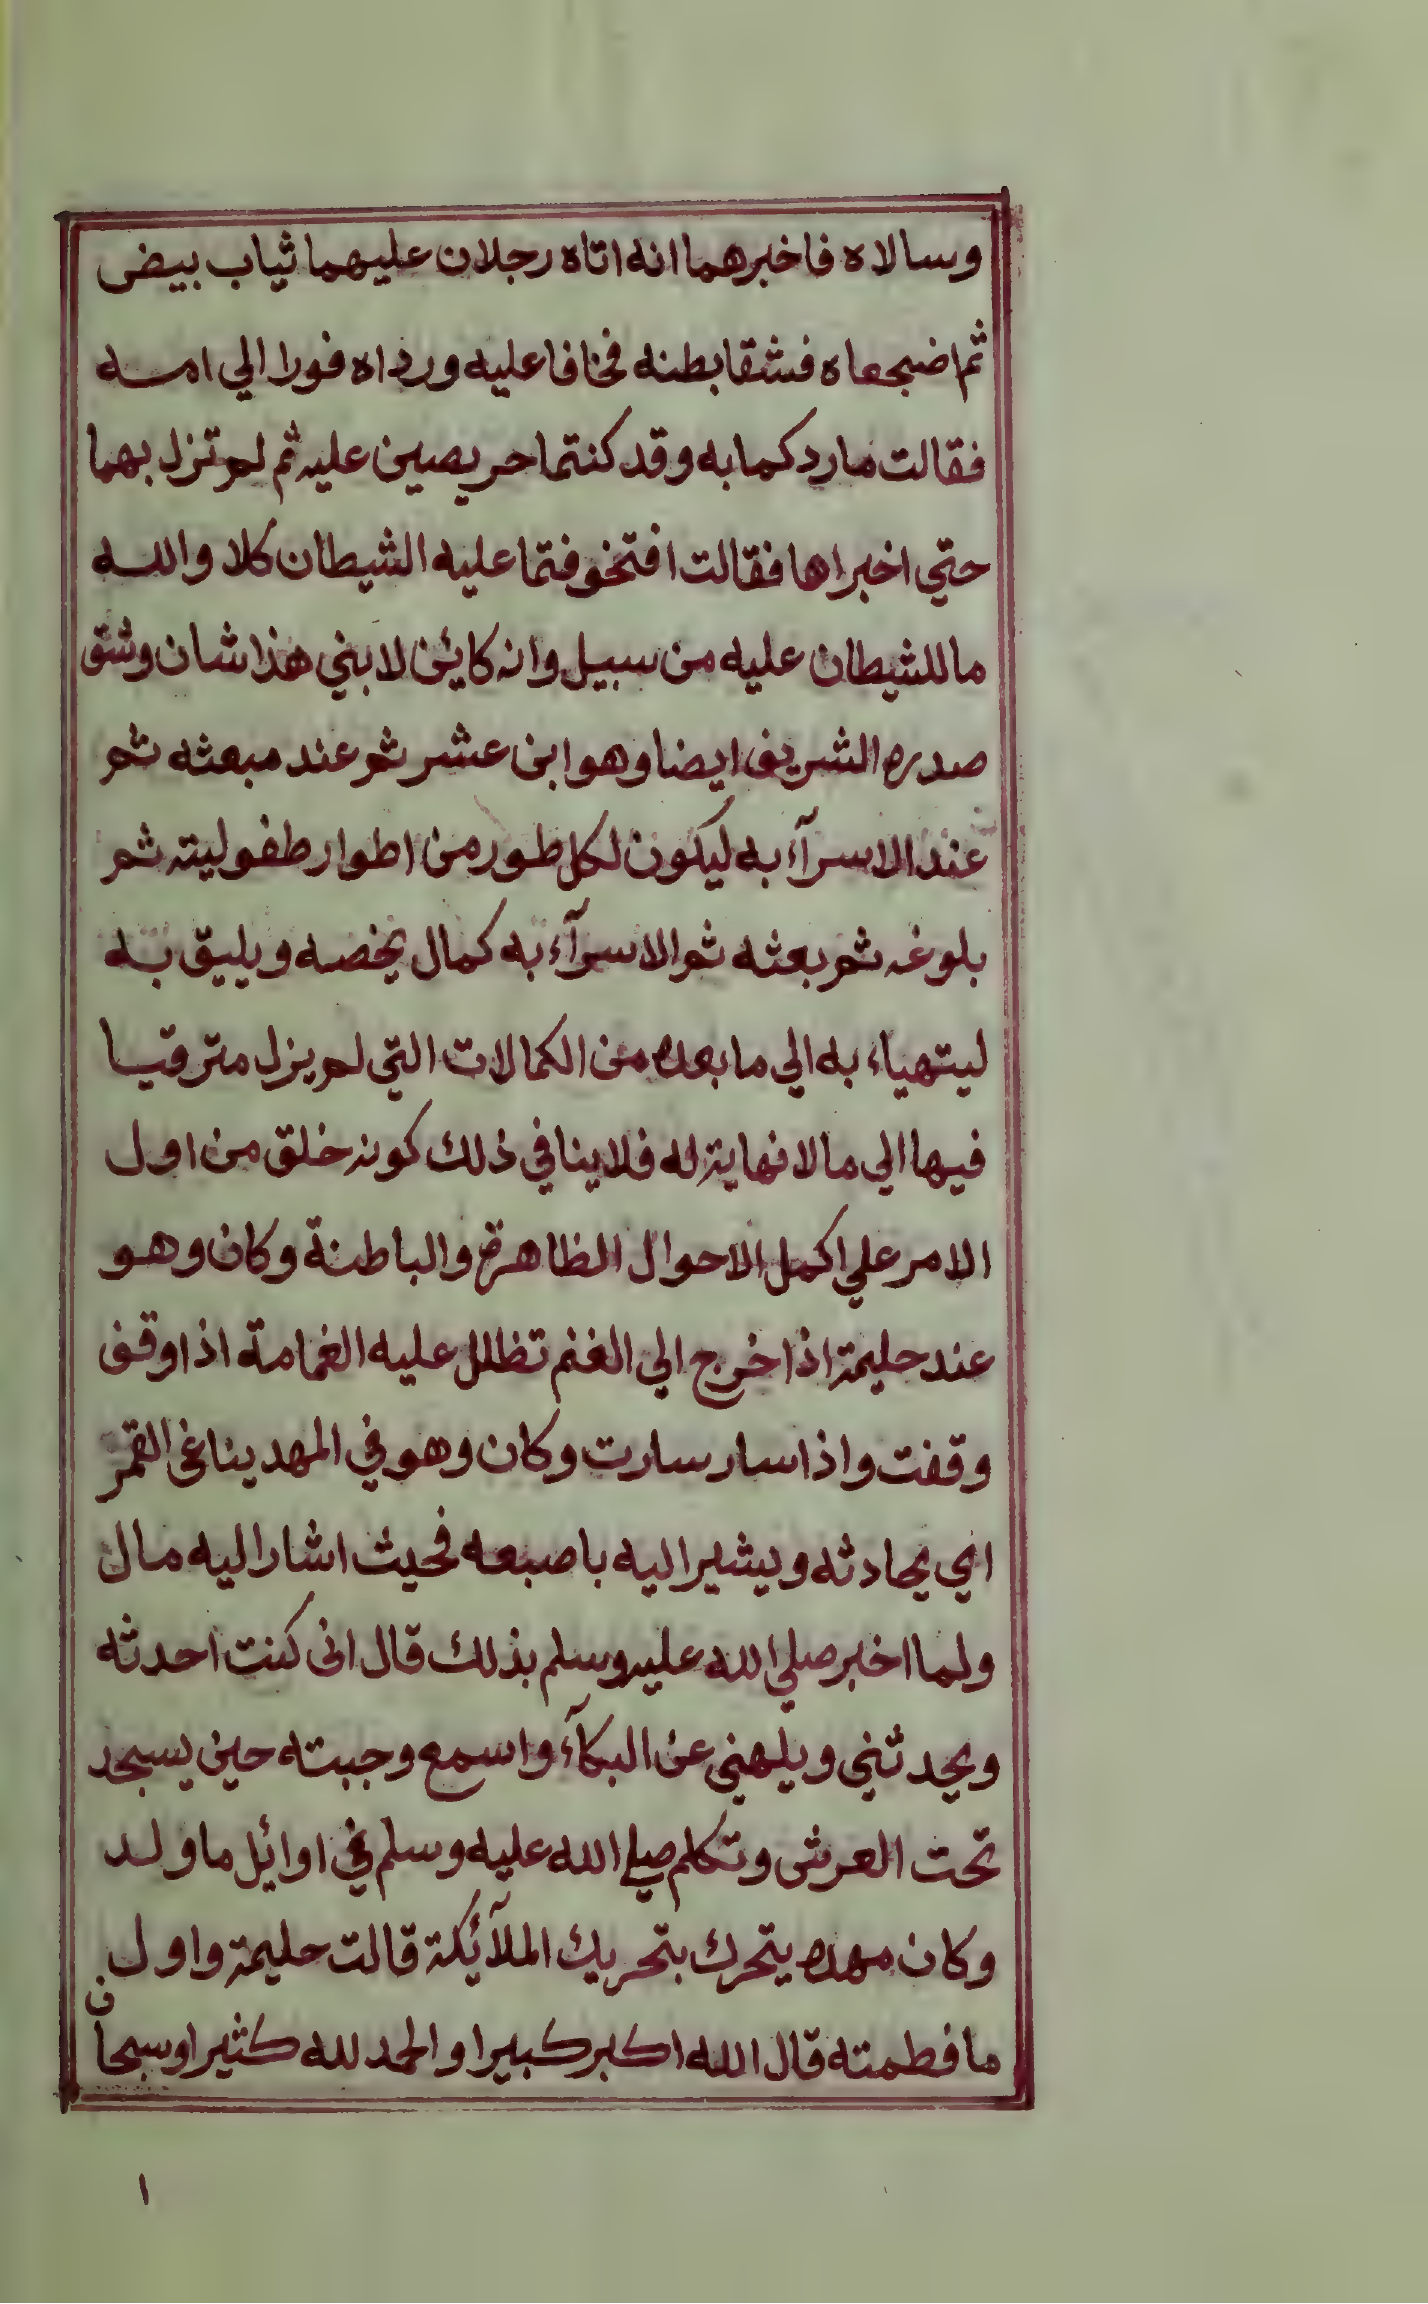 وسالاه فاخبرهما انه اتاه رجلان عليهما ثياب بيض
ثم اضجعاه فشقا بطنه فخافا عليه ورداه فورا الي امه
فقالت ما ردكما به وقد كنتما حريصين عليه ثم لم تزل بهما
حتي اخبراها فقالت افتخوفتما عليه الشيطان كلا والله
ما للشيطان عليه من سبيل وانه كائن لابني هذا شان وشق
صدره الشريف ايضا وهو ابن عشر ثم عند مبعثه ثم
عند الاسرآء به ليكون لكل طور من اطوار طفوليته ثم
بلوغه ثم بعثه ثم الاسرآء به كمال يخصه ويليق به
ليتهياء به الي ما بعده من الكمالات التي لم يزل مترقيا
فيها الي ما لا نهاية له فلا ينافي ذلك كونه خلق من اول
الامر علي اكمل الاحوال الظاهرة والباطنة وكان وهو
عند حليمة اذا خرج الي الغنم تظلل عليه الغمامة اذا وقف
وقفت واذا سار سارت وكان وهو في المهد يناغى القمر
اي يحادثه ويشير اليه باصبعه فحيث اشار اليه مال
ولما اخبر صلي الله عليه وسلم بذلك قال انى كنت احدثه
ويحدثني ويلهني عن البكآء واسمع وجبته حين يسجد
تحت العرش وتكلم صلي الله عليه وسلم في اوائل ما ولد
وكان مهده يتحرك بتحريك الملآئكة قالت حليمة واول
ما فطمته قال الله اكبر كبيرا والحمد لله كثيرا وسبحان
١